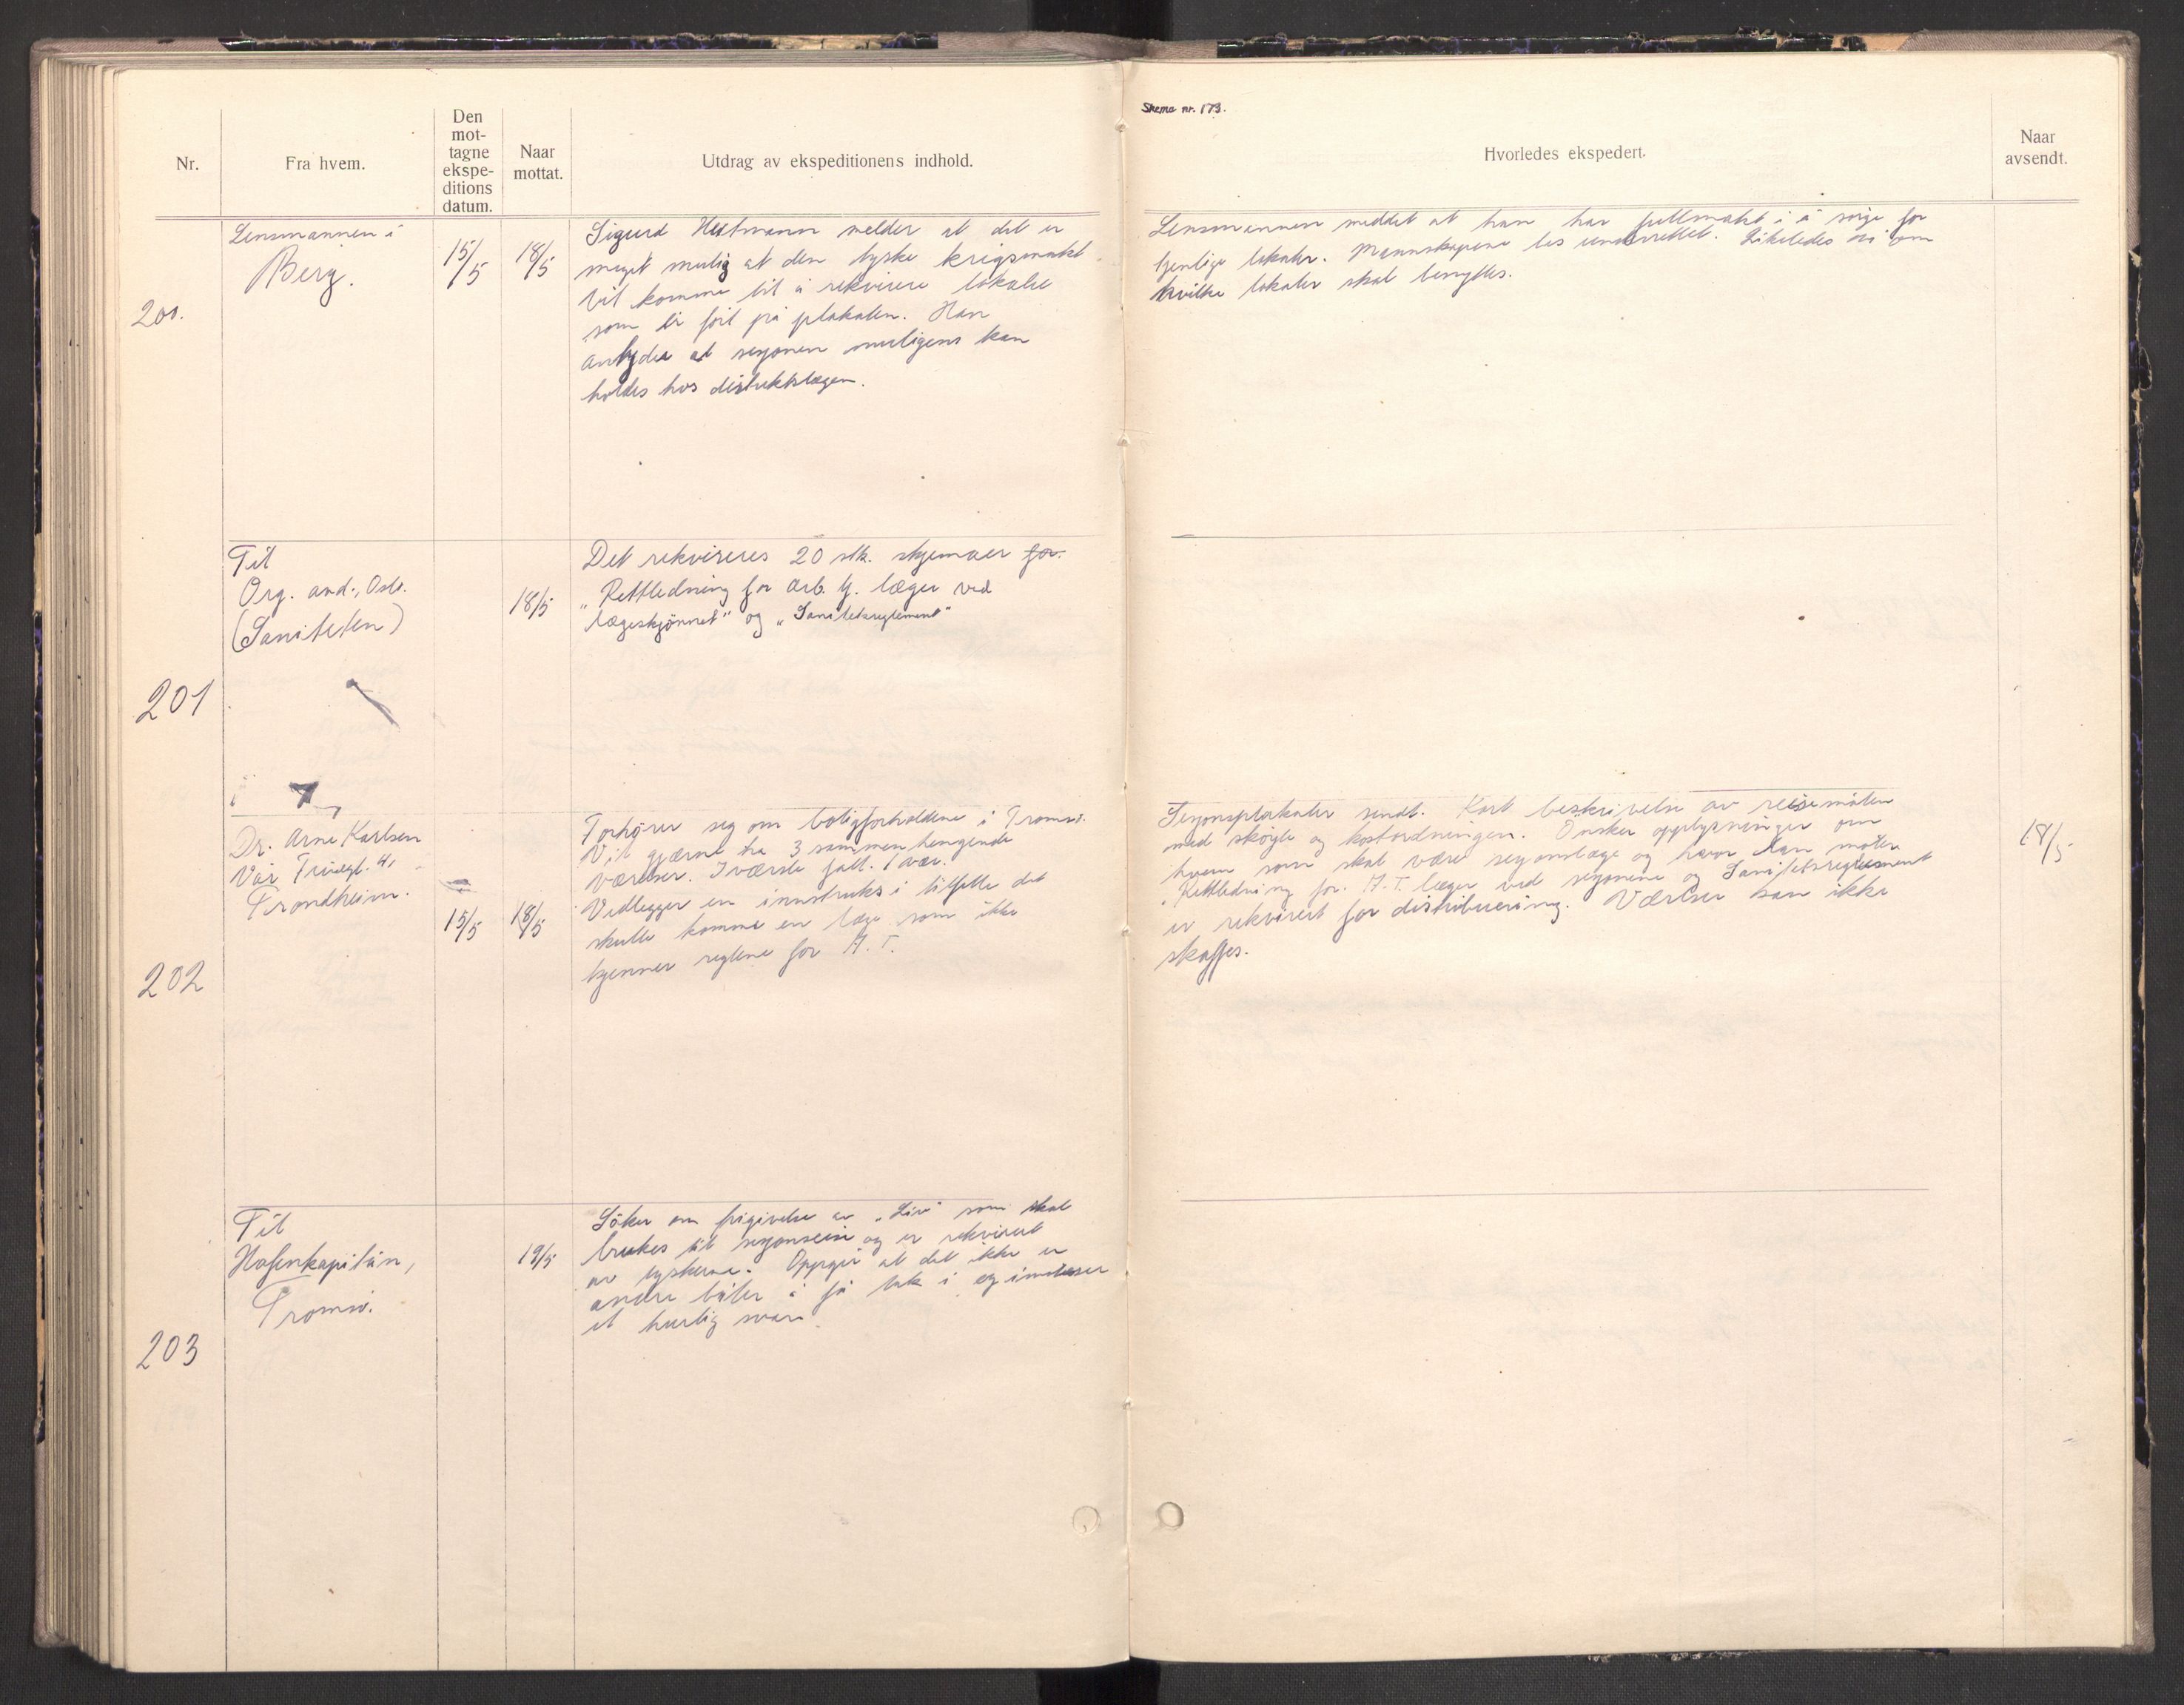 Skema nr. 173.
Nr.
Fra hvem.
Den
mot-
tagne
ekspe-
ditions
datum.
Naar
mottat.
Utdrag av ekspeditionens indhold.
Hvorledes ekspedert.
Naar
avsendt.
200.
Lensmannen i
Berg.
15/5
18/5
Sigurd melder at det er
meget mulig at den tyske krigsmakt
vil komme til å rekvirere lokalet
som er ført på plakaten. Han
antyder at sesjonen muligens kan
holdes hos distriktslægen.
Lensmannen meddelt at han har fullmakt i å sørge for
tjenlige lokaler. Mannskapene bes underrettet. Likeledes vi om
hvilke lokaler skal benyttes.
201
Til
Org. avd., Oslo.
(Saniteten)
18/5
Det rekvireres 20 stk. skjemaer for.
„Rettledning for Arb. tj. læger ved
lægeskjønnet" og „Sanitetsreglement"
202
Dr. Arne Karlsen
Vår Fruegt. 4,
Trondheim.
15/5
18/5
Forhører seg om boligforholdene i Tromsø.
Vil gjærne ha 3 sammenhengende
værelser. I værste fall. 1 vær.
Vedlegger en innstruks i tilfelle det
skulle komme en læge som ikke
kjenner reglene for A.T.
Sesjonsplakater sendt. Kort beskrivelse av reisemåten
med skøyte og kostordningen. Ønsker opplysninger om
hvem som skal være sesjonslæge og hvor han møter
„Rettledning for. A.T. læger ved sesjonene og Sanitetsreglement
er rekvirert for distribuering. Værelser kan ikke
skaffes.
18/5
203
Til
Hafenkapitän,
Tromsø.
19/5
Söker om frigivelse av „Liv" som skal
brukes til sesjonsreise og er rekvirert
av tyskerne. Oppgir at det ikke er
andre båter å få tak i og imøteser
et hurtig svar.